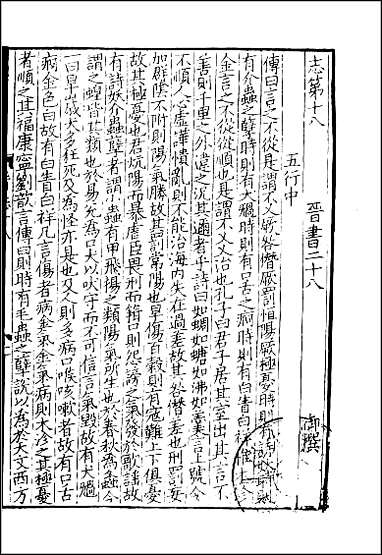 志第十八　　晉書二十八
五行中　　御撰
傳曰言之不從是謂不乂厥咎僭厥罰恒陽厥極憂時則有詩妖時則
有介蟲之孽時則有犬禍時則有口舌之痾時則有白眚白祥惟木沴
金言之不從從順也是謂不乂乂治也孔子曰君子居其室出其言不
善則千里之外違之況其邇者乎詩曰如蜩如螗如沸如羹言上號令
不順人心虛譁憒亂則不能治海内失在過差故其咎僭差也刑罰妄
加群陰不附則陽氣勝故其罰常陽也旱傷百穀則有寇難上下俱憂
故其極憂也君炕陽而暴虐臣畏刑而箝口則怨謗之氣發於歌謡故
有詩妖介蟲孽者謂小蟲有甲飛揚之類陽氣所生也於春秋為螽今
謂之蝗皆其類也於易兊為口犬以吠守而不可信言氣毀故有犬禍
一曰旱歲犬多狂死及為怪亦是也及人則多病口喉咳嗽者故有口舌
痾金色白故有白眚白祥凡言傷者病金氣金氣病則木沴之其極憂
者順之其福康寧劉歆言傳曰則時有毛蟲之孽説以為於天文西方